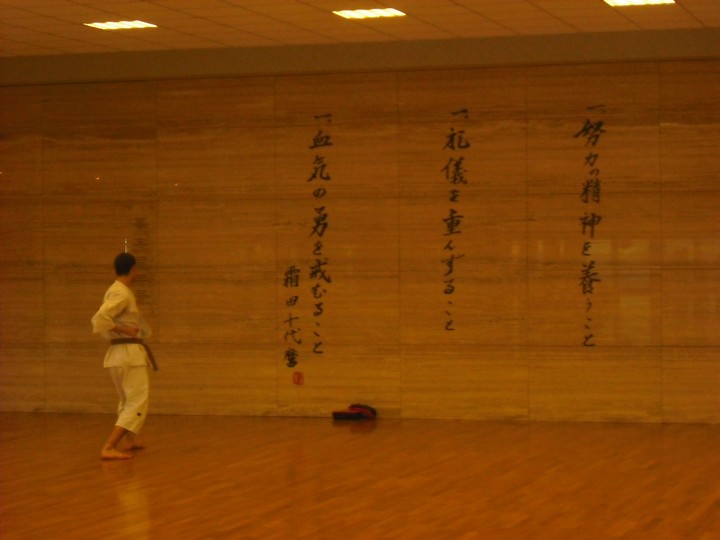 一、努力の精神を養うこと
一、礼儀を重んずること
一、血気の勇を戒むること
霜田十代麿